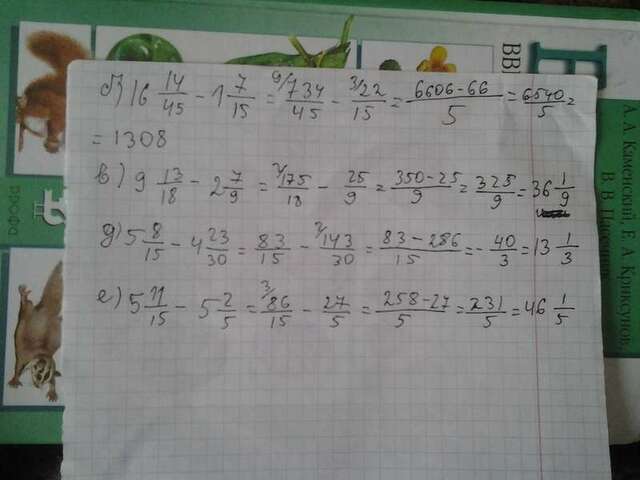 б) 16 14/45 − 1 7/15 = 9/ 734/45 − 3/ 22/15 = (6606−66)/5 = 6540/5 =
= 1308
в) 9 13/18 − 2 7/9 = 2/ 175/18 − 25/9 = (350−25)/9 = 325/9 = 36 1/9
д) 5 8/15 − 4 23/30 = 83/15 − 2/ 143/30 = (83−286)/15 = − 40/3 = 13 1/3
е) 5 11/15 − 5 2/5 = 3/ 86/15 − 27/5 = (258−27)/5 = 231/5 = 46 1/5
ВВ
А. А. Каменский, Е. А. Криксунов,
В. В. Пасечник